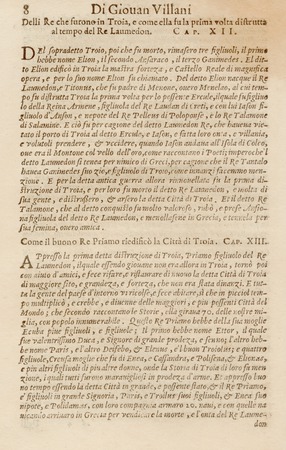 8 Di Giovan Villani
Delli Re che furono in Troia, e come ella fu la prima volta distrutta
al tempo del Re Laumedon. CAP. XII.
DEl sopradetto Troio, poi che fu morto, rimasero tre figliuoli, il primo
hebbe nome Elion, il secondo Assaraco, il terzo Ganimedes. El di-
to Elion edificò in Troia la mastra fortezza, e Castello Reale di magnifica
opera, e per lo suo nome Elion fu chiamato. Del detto Elion nacque il Re
Laumedon, e Titonus, che fu padre di Menone, al cui tem-
po fu distrutta Troia la prima volta per lo possente Ercole, il quale fu figliuo-
lo della Reina, figliuola del Re di Creti, e con lui Iason fi-
gliuolo d'Anson, e nipote del Re Pelleus di Peloponse, e lo Re Talamone
di Salamine. E ciò fu per cagione del detto Laumedon Re, che havea vie-
tato il porto di Troia al detto Ercole, e Iason, e fatta loro onta, e villania,
e volutoli prendere, & uccidere, quando Iason andava all'Isola di Colco,
ove era il Montone col vello dell'oro, come raccontano i Poeti; imperoche il
detto Laumedon si tenea per nimico de Greci, per cagione che il Re Tantalo
havea Ganimedes suo zio, e figliuolo di Troio, come innanzi facemmo men-
zione. E per la detta antica guerra allora rinnovellata fu la prima di-
struzione di Troia, e per loro fu morto il detto Re Laumedon, e molta di
sua gente, e distrussero, & arsero la detta Città di Troia. Et il detto Re
Talamone, che al detto conquisto fu molto valoroso, rubò, e prese
figliuola del detto Re Laumedon, e menollasene in Grecia, e tennela per
sua femina, overo amica.
Come il buono Re Priamo riedificò la Città di Troia. CAP. XIII.
APpresso la prima detta distruzione di Troia, Priamo figliuolo del Re
Laumedon, il quale essendo giovane non era allora in Troia, tornò poi
con aiuto d'amici, e fece rifare, e riformare di nuovo la detta Città di Troia
di maggiore sito, e grandezza, e fortezza, che non era stata dinanzi. E tut-
ta la gente del paese d'intorno vi raccolse, e fece abitare, sì che in piccol tem-
po multiplicò, e crebbe, e divenne delle maggiori, e più possenti Città del
Mondo; che secondo raccontano le Storie, ella girava 70. delle nostre mi-
glia, con popolo innumerabile. Questo Re Priamo hebbe della sua moglie
Ecuba più figliuoli, e figliuole: Il primo hebbe nome Ettor, il quale
fue valentissimo Duca, e Signore di grande prodezza, e senno; l'altro heb-
be nome Paris, e l'altro Deifebo, & Elinus, e'l buon Troiolus; e quattro
figliuole, Creusa moglie che fu di Enea, e Cassandra, e Polissena, & Elionas,
e più altri figliuoli di più altre donne, onde la Storia di Troia di loro fa men-
zione, i quali tutti furono maravigliosi in prodezza d'arme. Et appresso buo-
no tempo essendo la detta Città in grande, e possente stato, & il Re Priamo,
e figliuoli in grande Signoria, Paris, e Troilus suoi figliuoli, e Enea suo
nipote, e Polidamas, con loro compagnia armaro 20. navi, e con quelle na-
vicando arrivaro in Grecia per vendicare la morte, e l'onta del Re Laume-
don